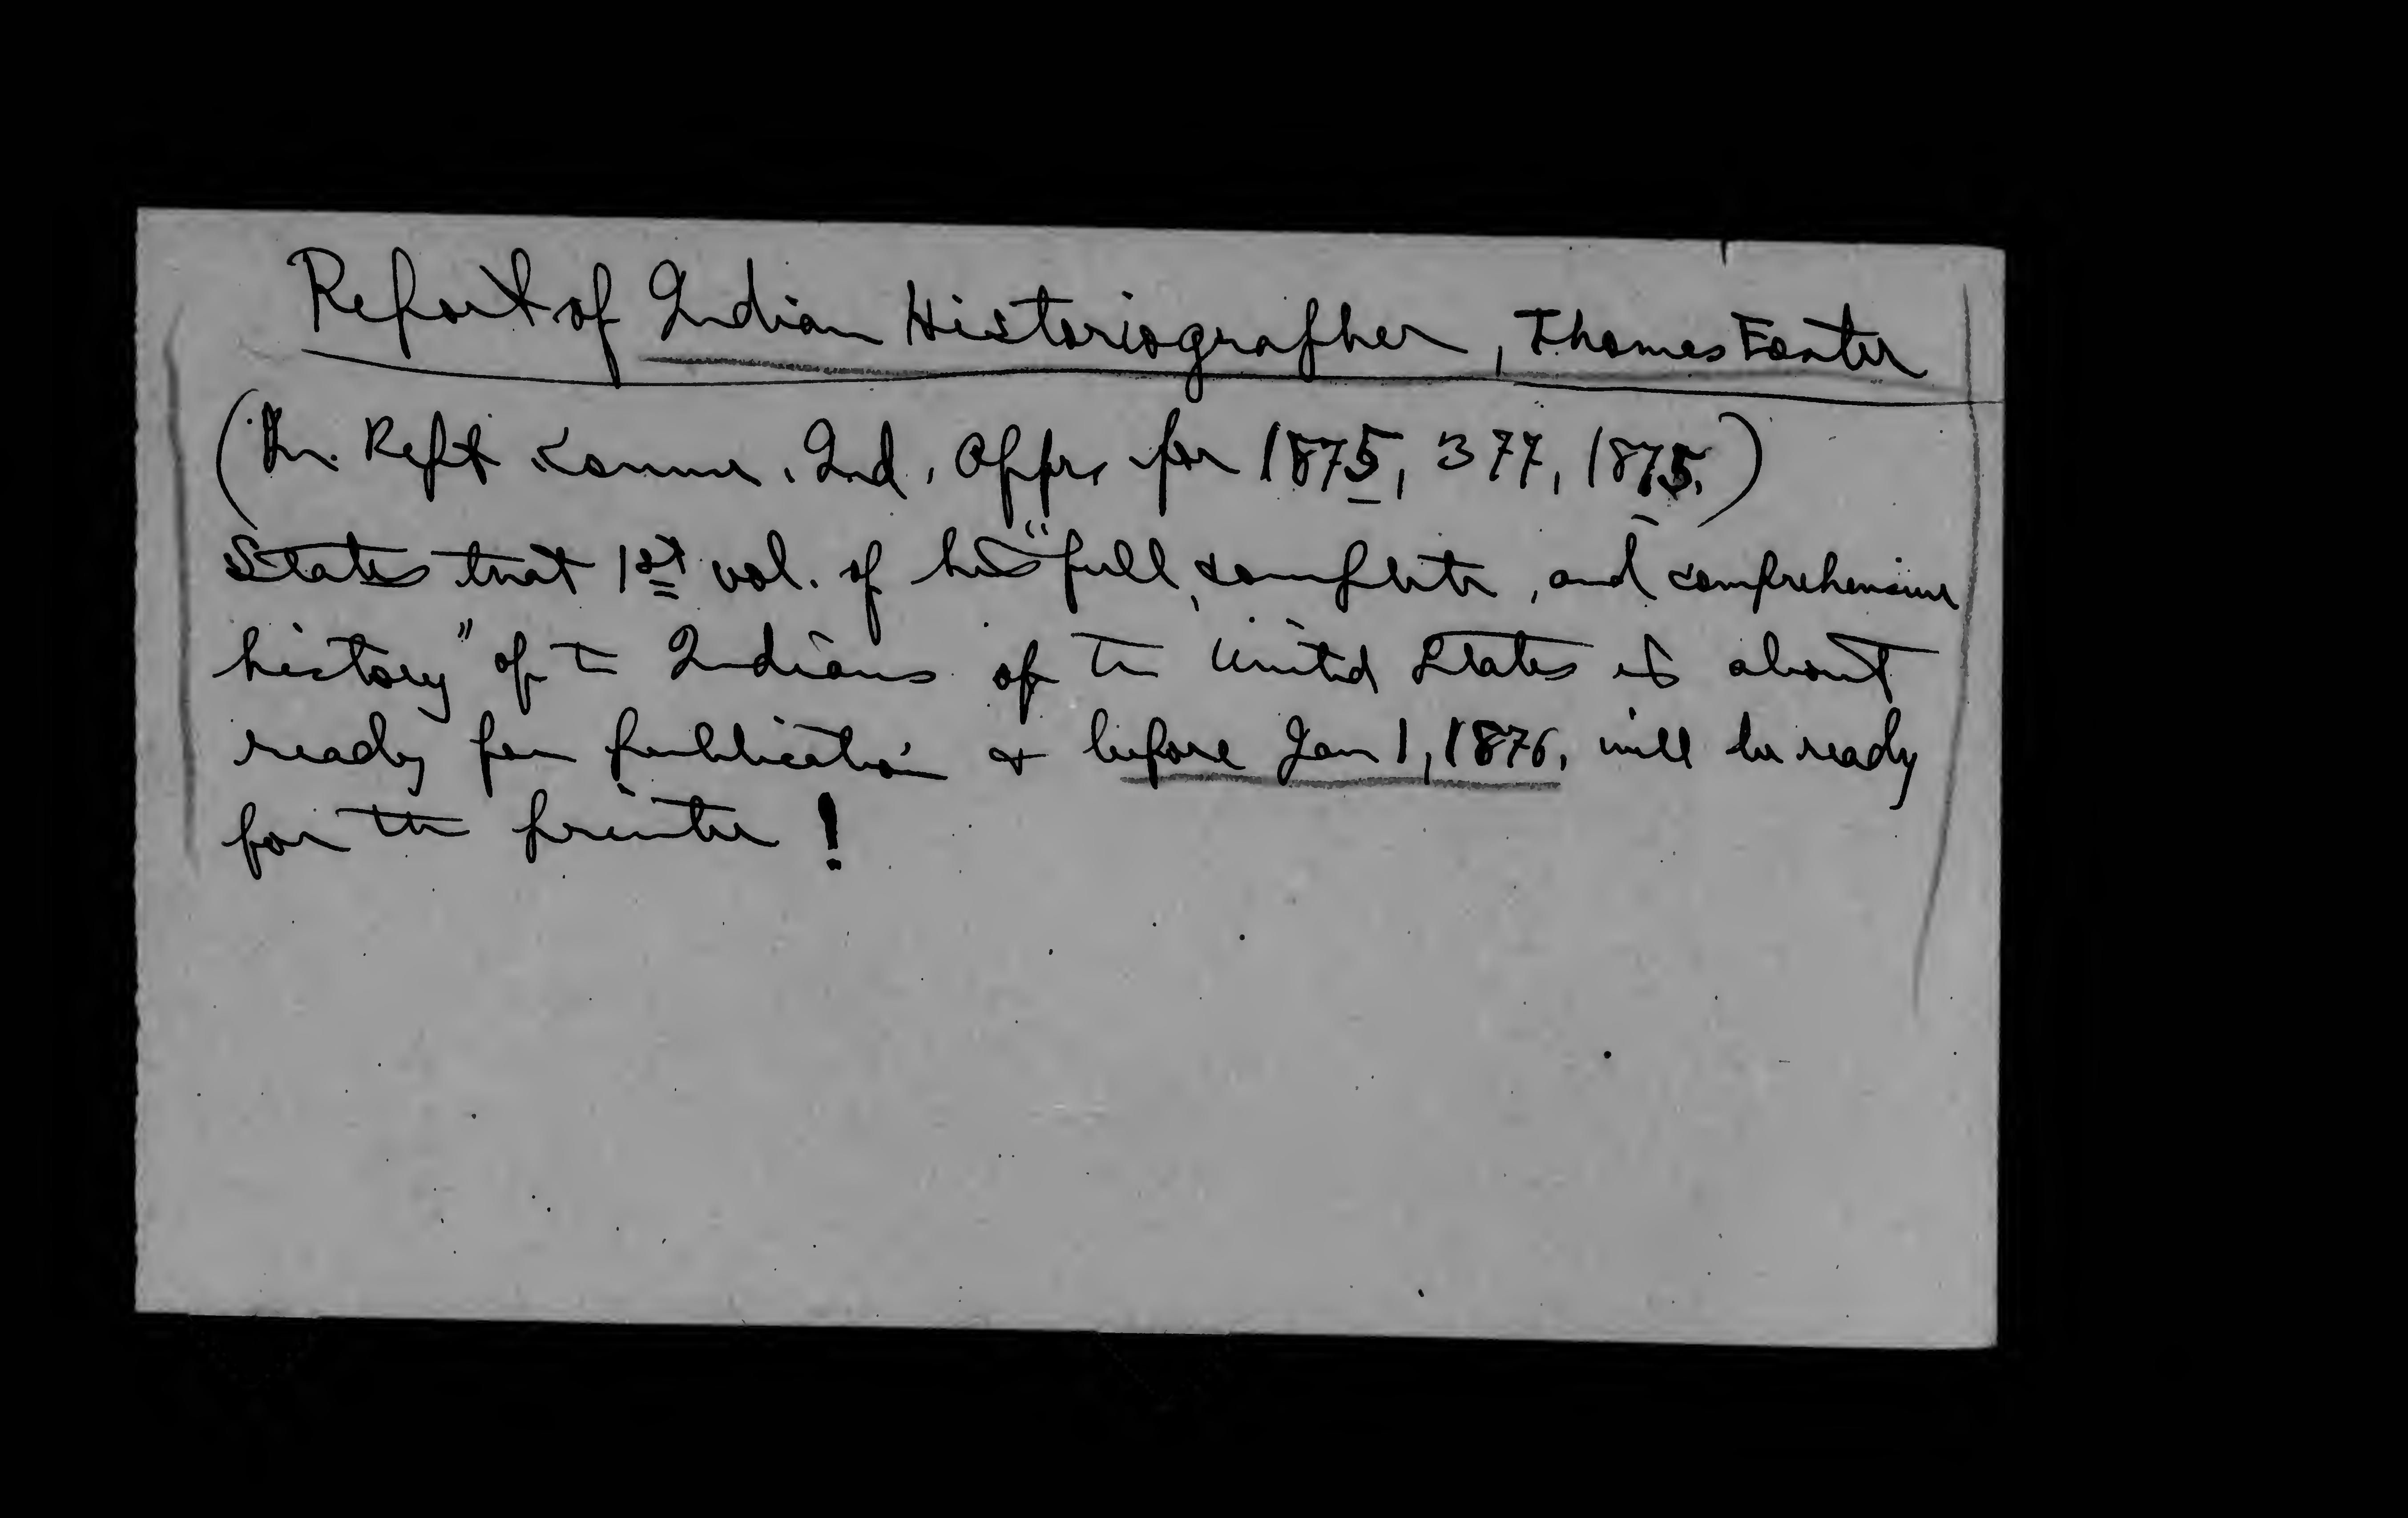 Report of Indian Historiographer, Thomas Foster
(In Rept Comm. Ind. Affrs for 1875, 377, 1875.)
States that 1st vol. of his "full, complete, and comprehensive
history" of the Indians of the United States is about
ready for publication & before Jan 1, 1876, will be ready
for the printer!